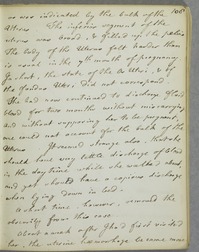 106
was indicated by the bulk of the
Uterus. The inferior segment of the
uterus was broad, & filled up the pelvis
The body of the Uterus felt harder than
is usual in the 7th month of pregnancy
In short, the state of the Os Uteri, & of
the fundus Uteri did not correspond.
She had now continued to discharge fluid
blood for two months without miscarrying
and without supposing her to be pregnant,
one could not account for the bulk of the
Uterus. It seemed strange also, that she
should have very little discharge of blood
in the day time while she walked about
and yet should have a copious discharge
when lying down in bed.
A short time, however, removed the
obscurity from this case.
About a week after I had first visited
her, the uterine hemorrhage became more